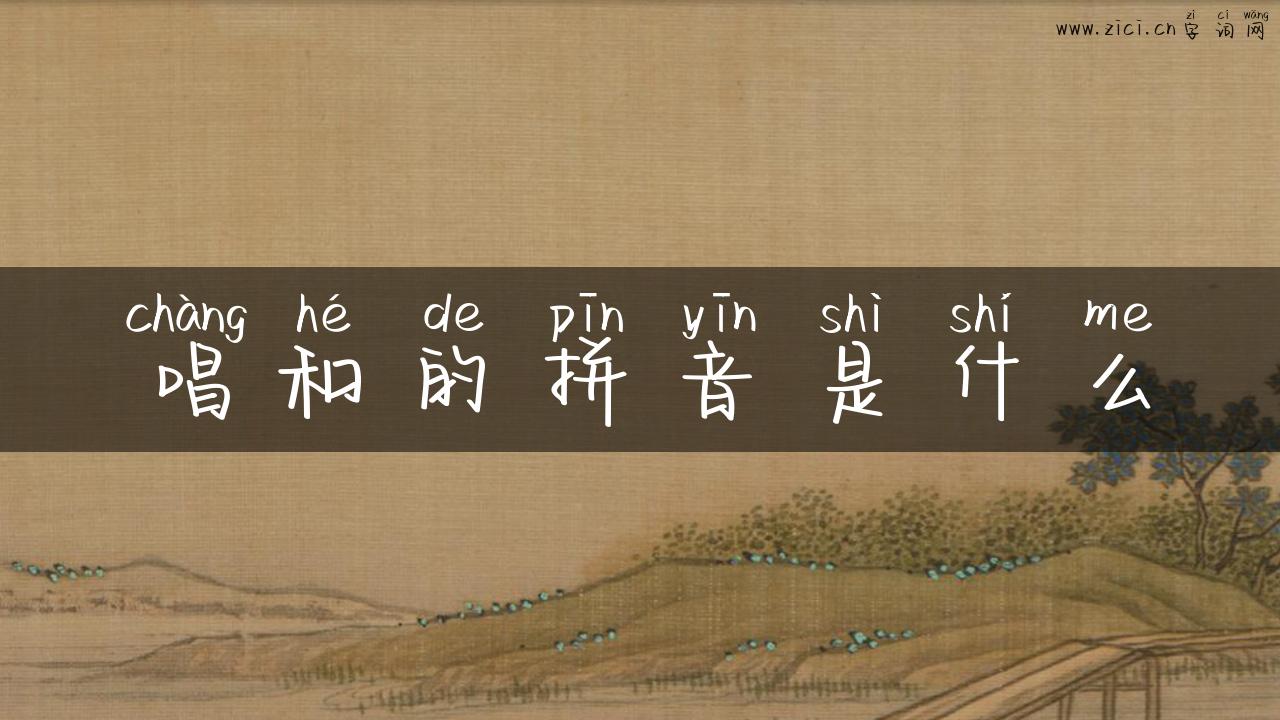 zì cí wǎng
www.zici.cn 字词网
chàng hé de pīn yīn shì shí me
唱和的拼音是什么